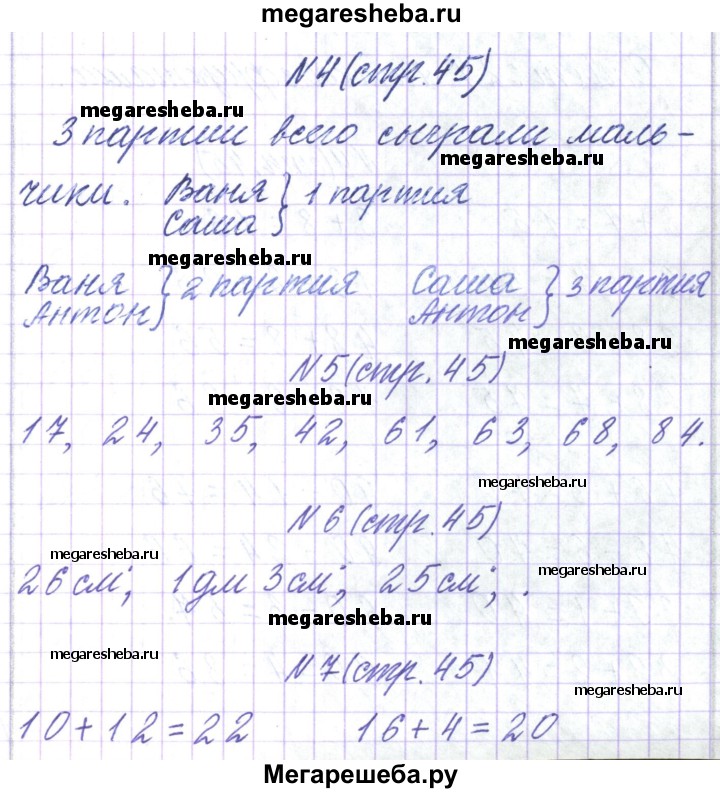 megaresheba.ru
N4 (стр. 45)
megaresheba.ru
3 партии всего сыграли маль-
megaresheba.ru
чики. Ваня } 1 партия
Саша
megaresheba.ru
Ваня } 2 партия Саша } 3 партия
Антон Антон
megaresheba.ru
N5 (стр. 45)
megaresheba.ru
17, 24, 35, 42, 61, 63, 68, 84.
megaresheba.ru
N6 (стр. 45)
megaresheba.ru
26 см; 1 дм 3 см; 25 см; .
megaresheba.ru
megaresheba.ru
megaresheba.ru
N7 (стр. 45)
megaresheba.ru
10 + 12 = 22 16 + 4 = 20
Мегарешеба.ру